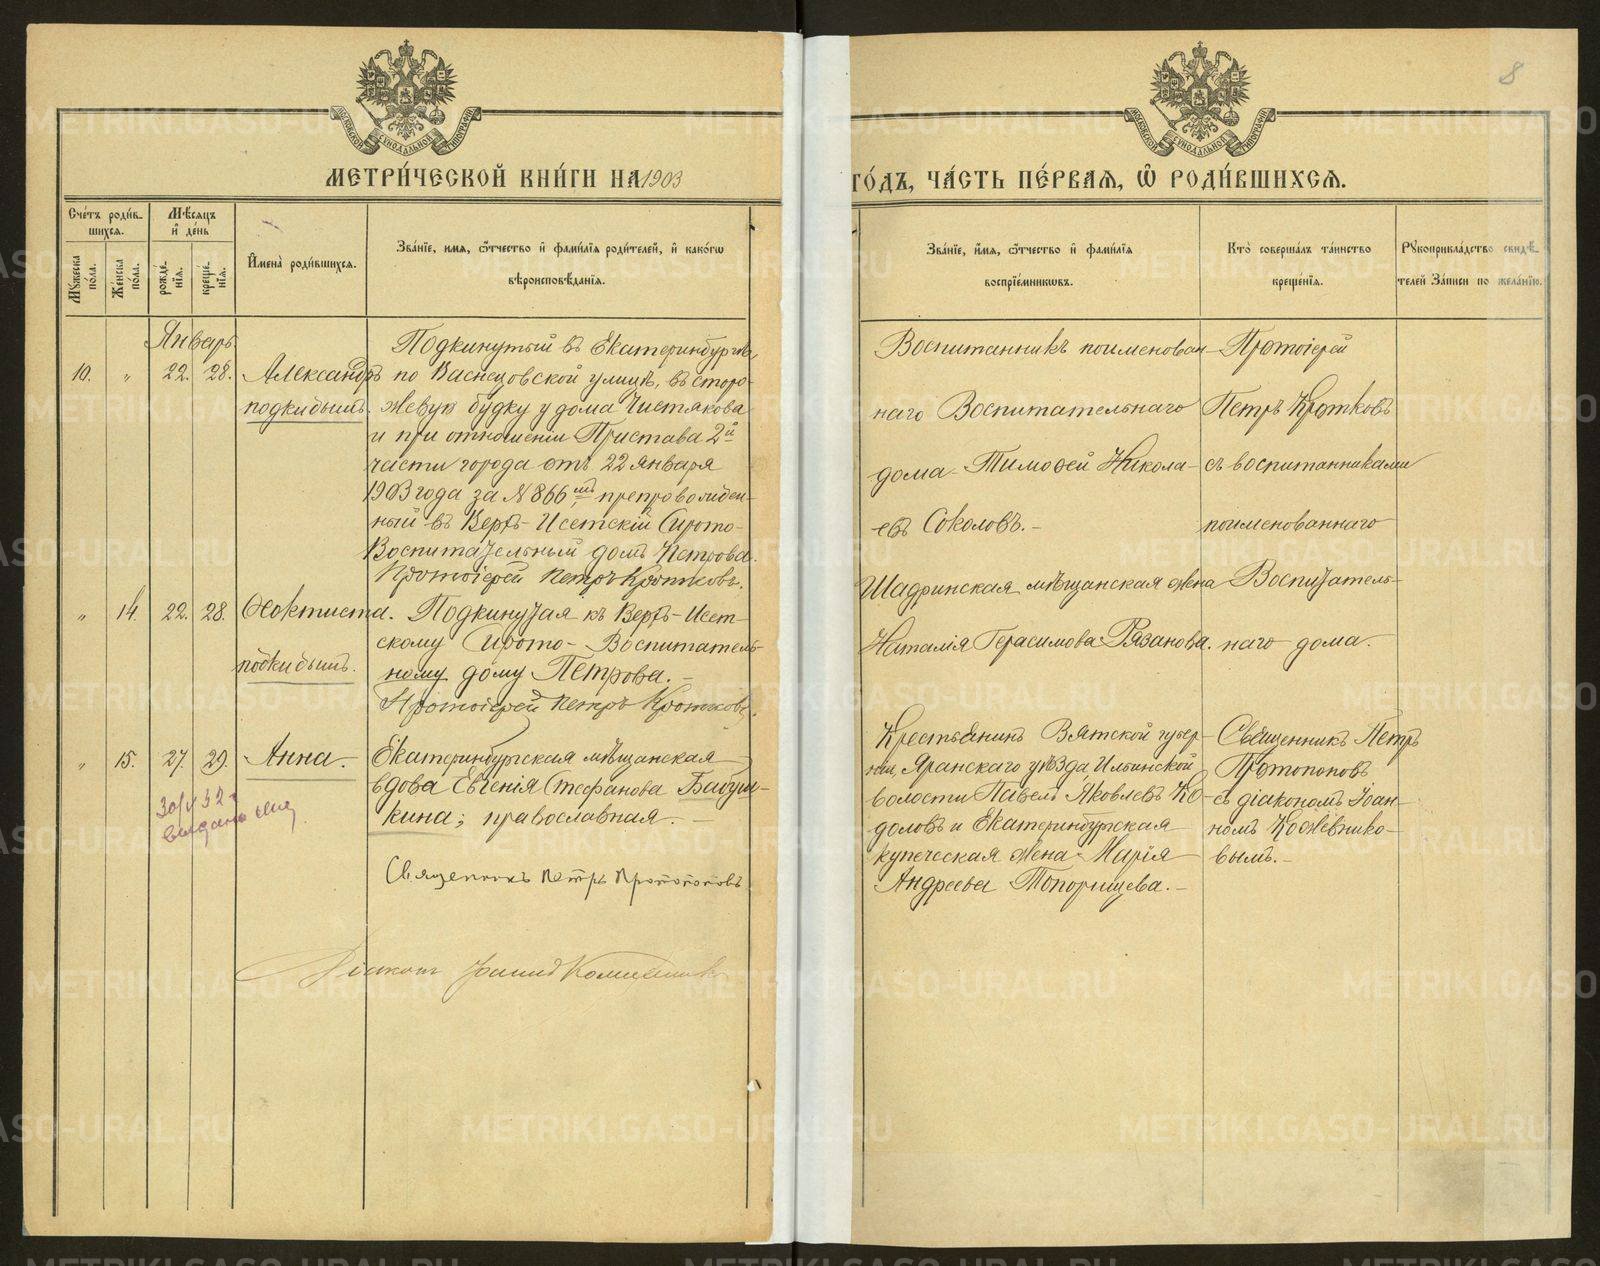 8
МОСКОВСКОЙ СУНОДАЛЬНОЙ ТИПОГРАФІИ
МОСКОВСКОЙ СУНОДАЛЬНОЙ ТИПОГРАФІИ
МЕТРИ́ЧЕСКОЙ КНИ́ГИ НА 1903
ГО́ДЪ, ЧА́СТЬ ПЕ́РВАѦ, Ѡ РОДИ́ВШИХСѦ.
Сче́тъ роди́в-
шихсѧ.
Му́жеска по́ла.
Же́нска по́ла.
Мѣ́сѧцъ
и҆ де́нь
рожде́-нїѧ.
креще́-нїѧ.
И҆мена̀ роди́вшихсѧ.
Зва́нїе, и҆мѧ, ѻ҆́тчество и҆ фами́лїѧ роди́телей, и҆ како́гѡ
вѣроисповѣ́данїѧ.
Зва́нїе, и҆́мѧ, ѻ҆́тчество и҆ фами́лїѧ
воспрїе́мникѡвъ.
Кто̀ соверша́лъ та́инство
креще́нїѧ.
Рꙋкоприкла́дство свидѣ́-
телей За́писи по жела́нїю.
Январь
10. „ 22. 28. Александръ
подкидышъ.
Подкинутый въ Екатеринбургѣ,
по Васнецовской улицѣ, въ сторо-
жевую будку у дома Чистякова
и при отношеніи Пристава 2й
части города отъ 22 января
1903 года за № 866мъ препровожден-
ный въ Верхъ-Исетскій Сирото-
Воспитательный домъ Петрова.
Протоіерей Петръ Кротковъ.
Воспитанникъ поименован-
наго Воспитательнаго
дома Тимоѳей Никола-
евъ Соколовъ.-
Протоіерей
Петръ Кротковъ
съ воспитанниками
поименованнаго
Воспитатель-
наго дома.
„ 14. 22. 28. Ѳоктиста.
подкидышъ.
Подкинутая къ Верхъ-Исет-
скому Сирото-Воспитатель-
ному дому Петрова.-
Протоіерей Петръ Кротковъ.
Шадринская мѣщанская жена
Наталія Герасимова Рязанова.
„ 15. 27. 29. Анна.-
Екатеринбургская мѣщанская
вдова Евгенія Стефанова Бабуш-
кина; православная.-
Священникъ Петръ Протопоповъ
Діаконъ Іоаннъ Кожевниковъ
30/V 32 г
выдано
Крестьянинъ Вятской губер-
ніи, Яранскаго уѣзда, Ильинской
волости Павелъ Яковлевъ Ко-
доловъ и Екатеринбургская
купеческая жена Марія
Андреева Топорищева.-
Священникъ Петръ
Протопоповъ
съ діакономъ Іоан-
номъ Кожевнико-
вымъ.-
METRIKI.GASO-URAL.RU